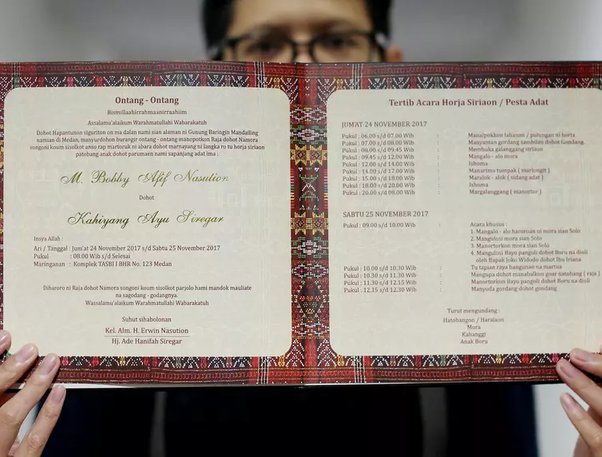 Ontang - Ontang
Bismillaahirrahmaanirraahiim
Assalamu'alaikum Warahmatullahi Wabarakatuh
Dohot Hapantunon siguriton on ma dalam nami sian alaman ni Gunung Baringin Mandailing
namian di Medan, manyurdohon burangir ontang - ontang manopotkon Raja dohot Namora
songoni koum sisolkot anso rap martorak ni abara dohot marnayang ni langka ro tu horja siriaon
patobang anak dohot parumaen nami sapanjang adat ima :
M. Bobby Afif Nasution
Dohot
Kahiyang Ayu Siregar
Insya Allah :
Ari / Tanggal : Jum'at 24 November 2017 s/d Sabtu 25 November 2017
Pukul : 08.00 Wib s/d Selesai
Maringanan : Komplek TASBI J BHR No. 123 Medan
Diharoro ni Raja dohot Namora songoni koum sisolkot parjolo hami mandok mauliate
na sagodang - godangnya.
Wassalamu'alaikum Warahmatullahi Wabarakatuh
Suhut sihabolonan
Kel. Alm. H. Erwin Nasution
Hj. Ade Hanifah Siregar
Tertib Acara Horja Siriaon / Pesta Adat
JUM'AT 24 NOVEMBER 2017
Pukul : 06.00 s/d 07.00 Wib : ManaPpokkon taharum / pulungan ni horta
Pukul : 07.00 s/d 08.00 Wib : Manyantan gordang sambilan dohot Gandang.
Pukul : 08.00 s/d 09.45 Wib : Membuka galanggang siriaon
Pukul : 09.45 s/d 12.00 Wib : Mangalo - alo mora
Pukul : 12.00 s/d 14.00 Wib : Ishoma
Pukul : 14.00 s/d 15.00 Wib : Manarima tumpak ( marlongit )
Pukul : 15.00 s/d 18.00 Wib : Maralok - alok ( sidang adat )
Pukul : 18.00 s/d 20.00 Wib : Ishoma
Pukul : 20.00 s/d 00.00 Wib : Margalanggang ( manortor )
SABTU 25 NOVEMBER 2017
Pukul : 09.00 s/d 10.00 Wib : Acara khusus :
1. Mangalo - alo haroroan ni mora sian Solo
2. Mangulosi mora sian Solo
3. Manortorkon mora sian Solo
4. Mangulosi Bayo pangoli dohot Boru na dioli
oleh Bapak Joko Widodo dohot Ibu Iriana
Pukul : 10.00 s/d 10.30 Wib : Tu tapian raya bangunan na martua
Pukul : 10.30 s/d 11.30 Wib : Mangupa dohot manabalkon goar matobang ( raja )
Pukul : 11.30 s/d 12.15 Wib : Manortorkon Bayo pangoli dohot Boru na dioli
Pukul : 12.15 s/d 12.30 Wib : Manyuda gordang dohot gondang
Turut mengundang :
Hatobangon / Harajaon
Mora
Kahanggi
Anak Boru